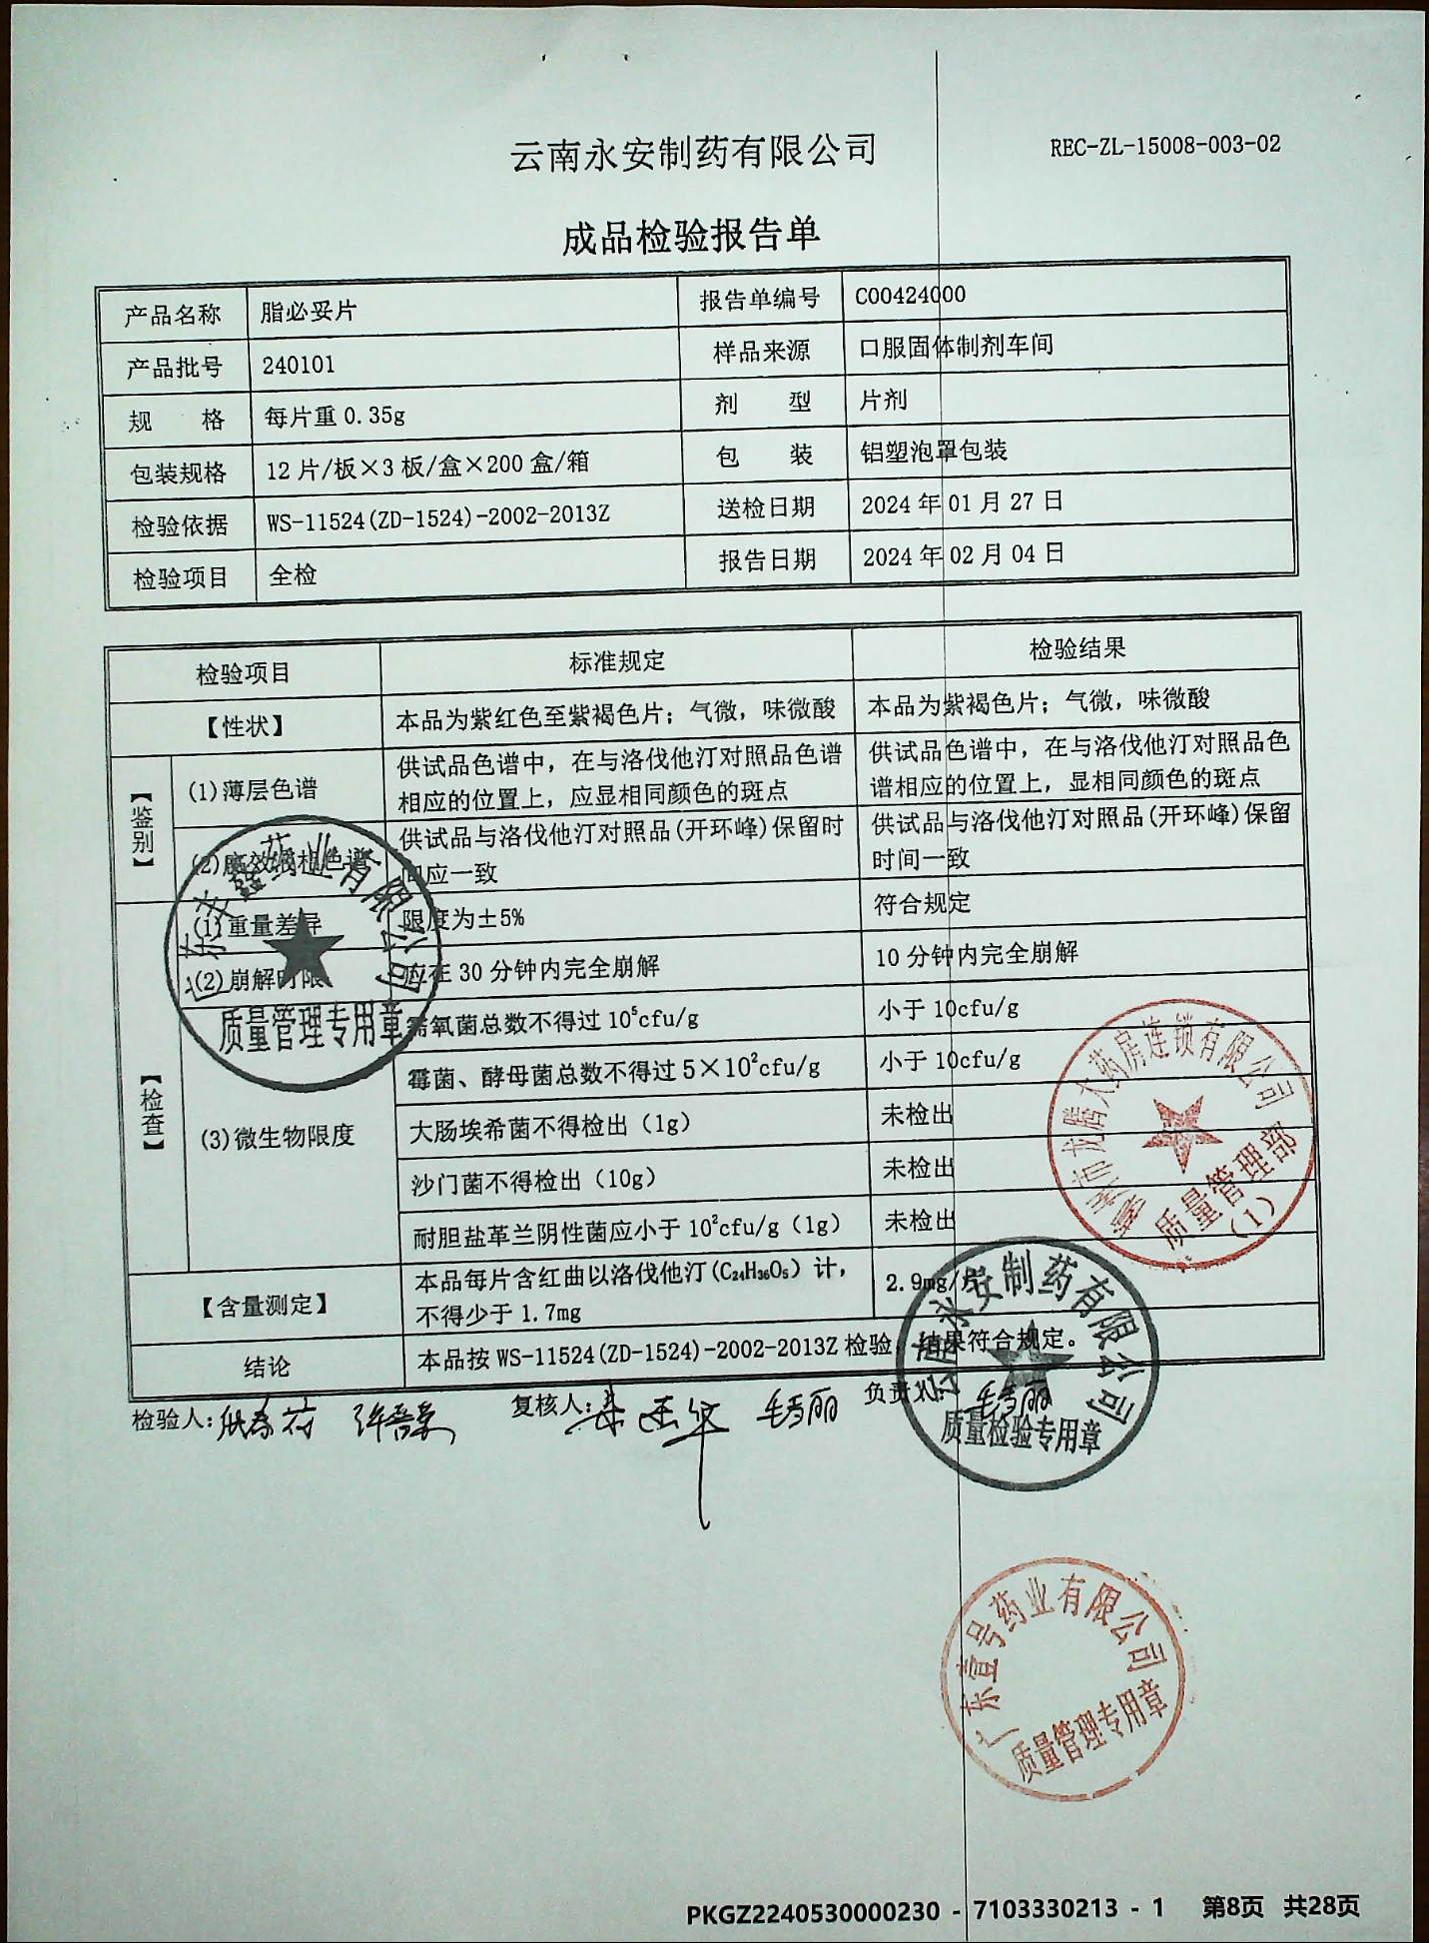 云南永安制药有限公司
REC-ZL-15008-003-02
成品检验报告单
产品名称 脂必妥片 报告单编号 C00424000
产品批号 240101 样品来源 口服固体制剂车间
规 格 每片重 0.35g 剂 型 片剂
包装规格 12 片/板×3 板/盒×200 盒/箱 包 装 铝塑泡罩包装
检验依据 WS-11524(ZD-1524)-2002-2013Z 送检日期 2024 年 01 月 27 日
检验项目 全检 报告日期 2024 年 02 月 04 日
检验项目 标准规定 检验结果
【性状】 本品为紫红色至紫褐色片；气微，味微酸 本品为紫褐色片；气微，味微酸
【鉴别】
(1)薄层色谱 供试品色谱中，在与洛伐他汀对照品色谱 供试品色谱中，在与洛伐他汀对照品色
相应的位置上，应显相同颜色的斑点 谱相应的位置上，显相同颜色的斑点
(2)高效液相色谱 供试品与洛伐他汀对照品(开环峰)保留时 供试品与洛伐他汀对照品(开环峰)保留
间应一致 时间一致
【检查】
(1)重量差异 限度为±5% 符合规定
(2)崩解时限 应在 30 分钟内完全崩解 10 分钟内完全崩解
(3)微生物限度
需氧菌总数不得过 10⁵cfu/g 小于 10cfu/g
霉菌、酵母菌总数不得过 5×10²cfu/g 小于 10cfu/g
大肠埃希菌不得检出（1g） 未检出
沙门菌不得检出（10g） 未检出
耐胆盐革兰阴性菌应小于 10²cfu/g（1g） 未检出
【含量测定】 本品每片含红曲以洛伐他汀(C₂₄H₃₆O₅）计， 2.9mg/片
不得少于 1.7mg
结论 本品按 WS-11524(ZD-1524)-2002-2013Z 检验，结果符合规定。
检验人： 复核人： 毛雪丽 负责人： 毛雪丽
药业有限公司
质量管理专用章
龙腾大药房连锁有限公司
质量管理部
(1)
云南永安制药有限公司
质量检验专用章
广东壹号药业有限公司
质量管理专用章
PKGZ2240530000230 - 7103330213 - 1 第8页 共28页